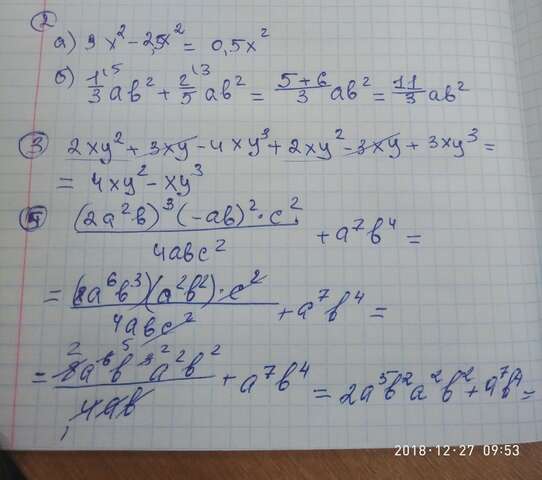 ②
а) 3x² - 2,5x² = 0,5x²
б) 1/3 ab² + 2/5 ab² = (5+6)/3 ab² = 11/3 ab²
③ 2xy² + 3xy - 4xy³ + 2xy² - 3xy + 3xy³ =
= 4xy² - xy³
(2a²b)³(-ab)²·c² / 4abc² + a⁷b⁴ =
= (8a⁶b³)(a²b²)·c² / 4abc² + a⁷b⁴ =
= 8a⁶b³a²b² / 4ab + a⁷b⁴ = 2a⁵b²a²b² + a⁷b⁴ =
2018-12-27 09:53